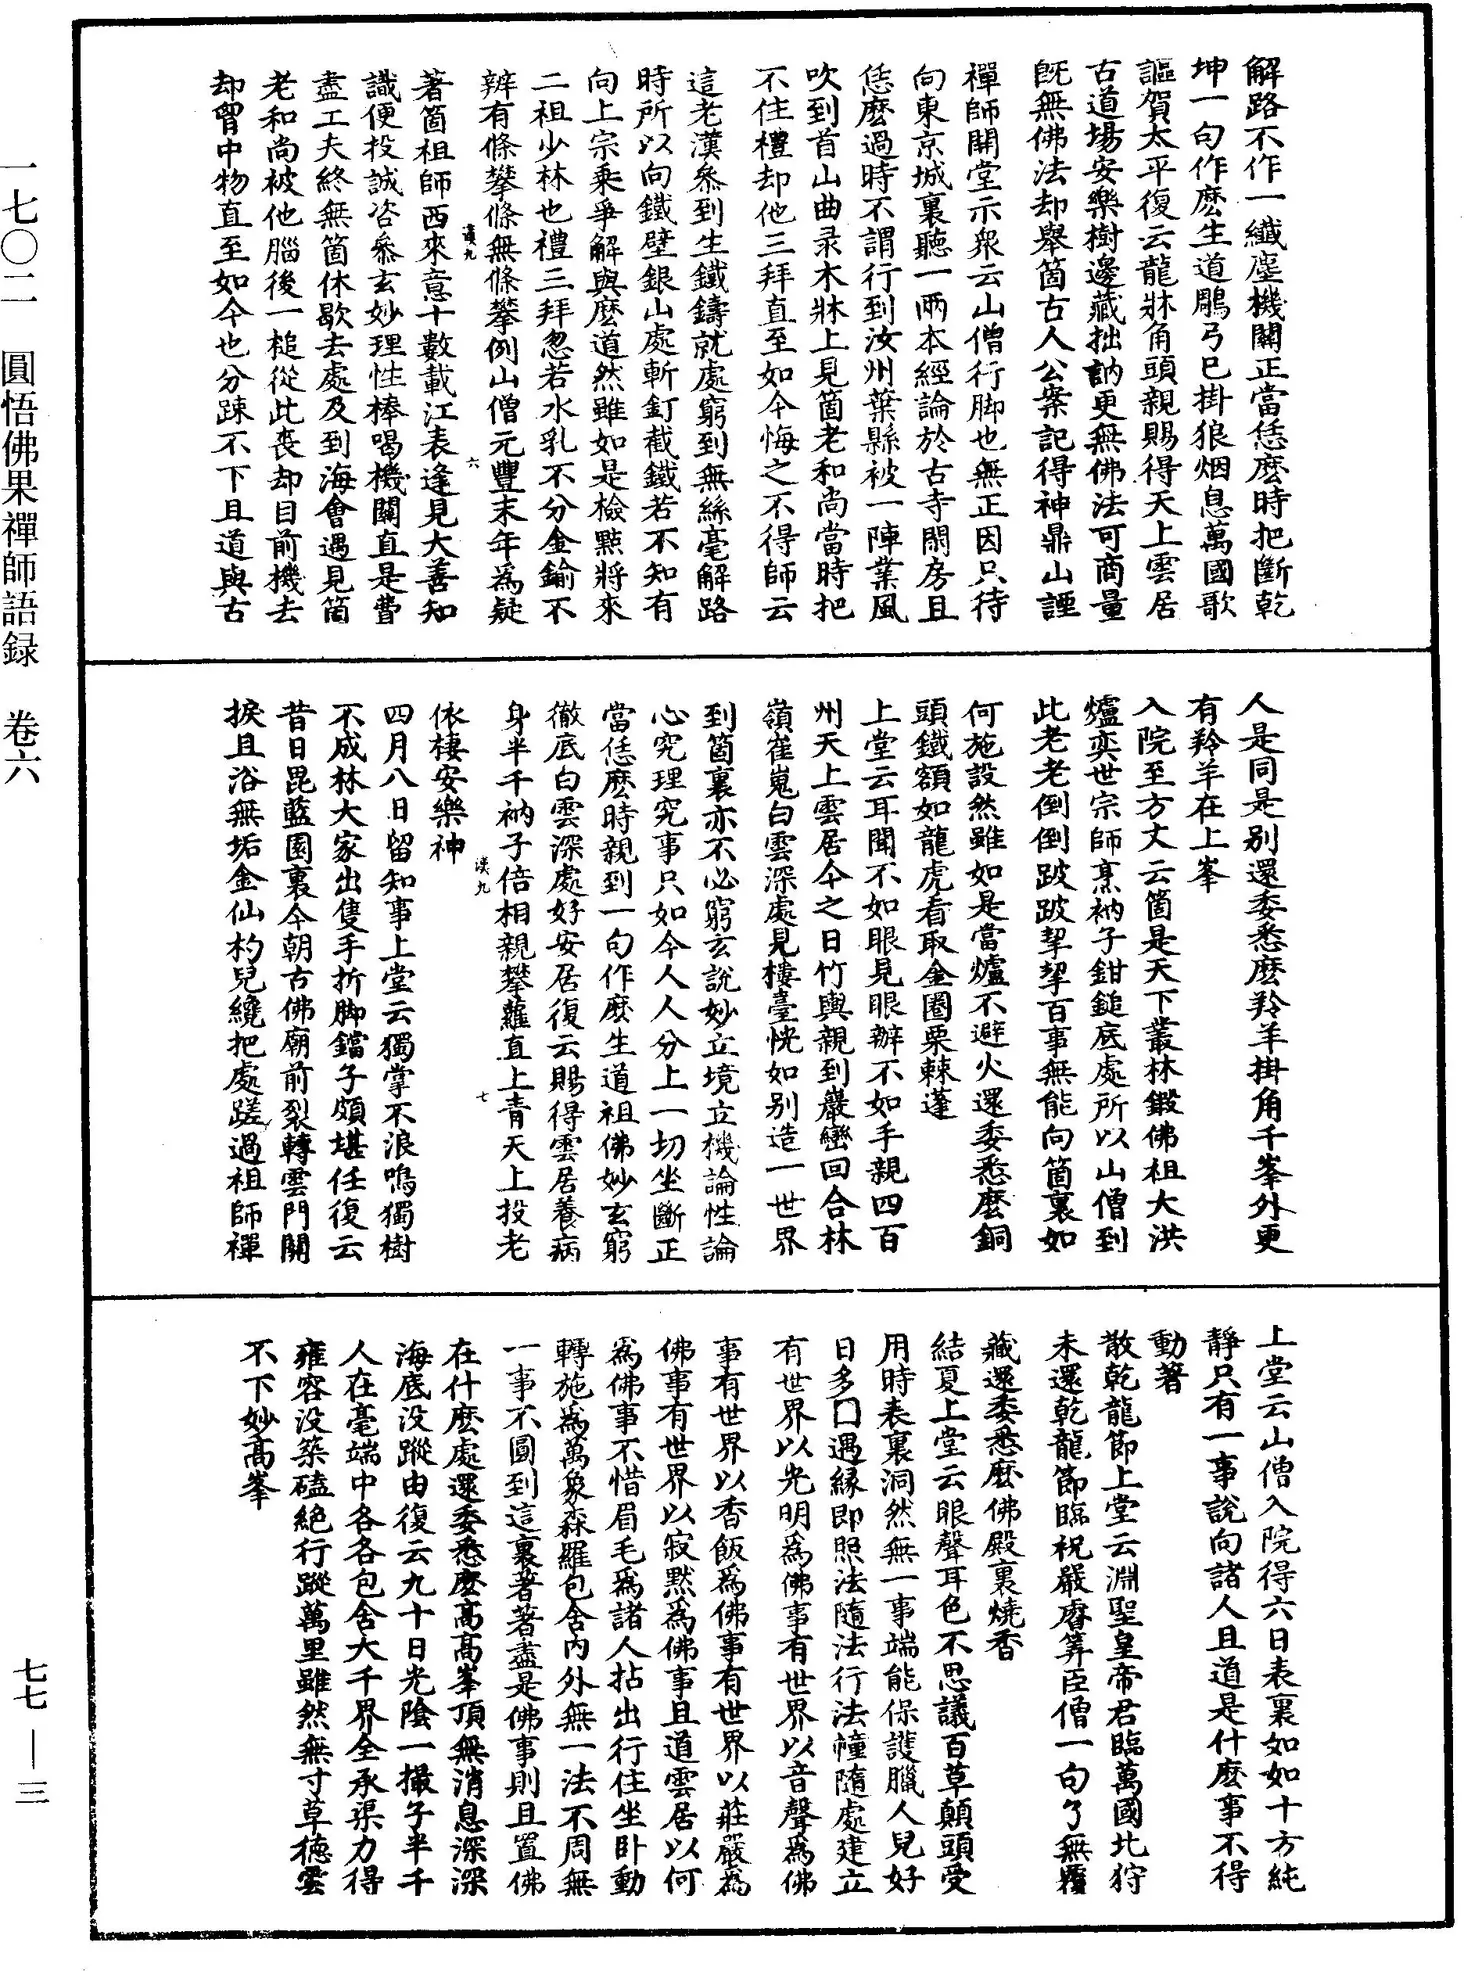 解路不作一纖塵機關正當恁麽時把斷乾
坤一句作麽生道鵰弓已掛狼烟息萬國歌
謳賀太平復云龍牀角頭親賜得天上雲居
古道場安樂樹邊藏拙訥更無佛法可商量
旣無佛法却舉箇古人公案記得神鼎山諲
禪師開堂示衆云山僧行脚也無正因只待
向東京城裏聽一兩本經論於古寺閑房且
恁麽過時不謂行到汝州葉縣被一陣業風
吹到首山曲录木牀上見箇老和尚當時把
不住禮却他三拜直至如今悔之不得師云
這老漢叅到生鐵鑄就處窮到無絲毫解路
時所以向鐵壁銀山處斬釘截鐵若不知有
向上宗乘爭解與麽道然雖如是檢點將來
二祖少林也禮三拜忽若水乳不分金鍮不
辨有條攀條無條攀例山僧元豐末年爲疑
漢九 六
著箇祖師西來意十數載江表逢見大善知
識便投誠咨叅玄妙理性棒喝機關直是費
盡工夫終無箇休歇去處及到海會遇見箇
老和尚被他腦後一槌從此喪却目前機去
却胷中物直至如今也分踈不下且道與古
人是同是別還委悉麽羚羊掛角千峯外更
有羚羊在上峯
入院至方丈云箇是天下叢林鍛佛祖大洪
爐奕世宗師烹衲子鉗鎚底處所以山僧到
此老老倒倒跛跛挈挈百事無能向箇裏如
何施設然雖如是當爐不避火還委悉麽銅
頭鐵額如龍虎看取金圈栗棘蓬
上堂云耳聞不如眼見眼辦不如手親四百
州天上雲居今之日竹輿親到巖巒回合林
嶺崔嵬白雲深處見樓臺恍如别造一世界
到箇裏亦不必窮玄說妙立境立機論性論
心究理究事只如今人人分上一切坐斷正
當恁麽時親到一句作麽生道祖佛妙玄窮
徹底白雲深處好安居復云賜得雲居養病
身半千衲子倍相親攀蘿直上青天上投老
漢九 七
依棲安樂神
四月八日留知事上堂云獨掌不浪鳴獨樹
不成林大家出隻手折脚鐺子頗堪任復云
昔日毘藍園裏今朝古佛廟前裂轉雲門關
捩且浴無垢金仙杓兒纔把處蹉過祖師禪
上堂云山僧入院得六日表裏如如十方純
靜只有一事說向諸人且道是什麽事不得
動著
散乾龍節上堂云淵聖皇帝君臨萬國北狩
未還乾龍節臨祝嚴睿筭臣僧一句了無覆
藏還委悉麽佛殿裏燒香
結夏上堂云眼聲耳色不思議百草顛頭受
用時表裏洞然無一事端能保護臘人兒好
日多囗遇緣即照法隨法行法幢隨處建立
有世界以光明爲佛事有世界以音聲爲佛
事有世界以香飯爲佛事有世界以莊嚴爲
佛事有世界以寂黙爲佛事且道雲居以何
爲佛事不惜眉毛爲諸人拈出行住坐卧動
轉施爲萬象森羅包含內外無一法不周無
一事不圓到這裏著著盡是佛事則且置佛
在什麽處還委悉麽高高峯頂無消息深深
海底没蹤由復云九十日光陰一撮子半千
人在毫端中各各包含大千界全承渠力得
雍容没築磕絕行蹤萬里雖然無寸草德雲
不下妙高峯
一七〇二 圓悟佛果禪師語録 卷六
七七 — 三